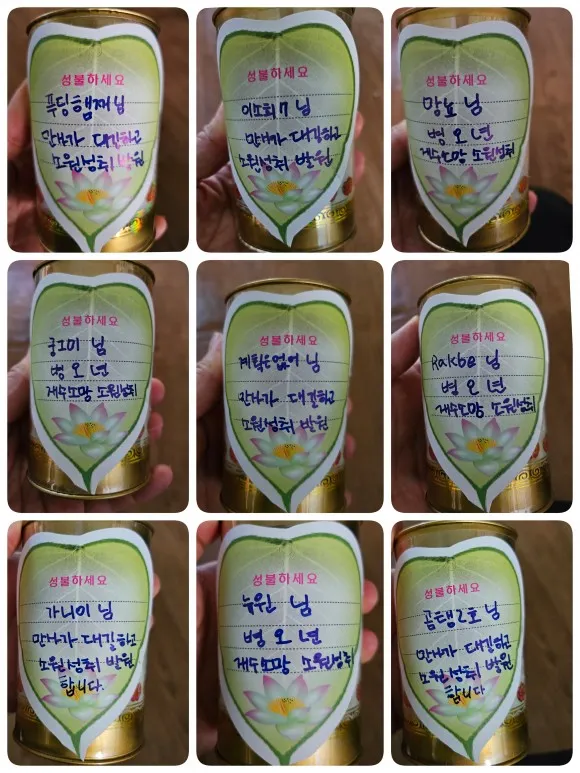 성불하세요
푸딩햄찌님
만사가 대길하고
소원성취 발원
성불하세요
이소희7 님
만사가 대길하고
소원성취 발원
성불하세요
망뇨 님
병 오 년
재수소망 소원성취
성불하세요
궁그미 님
병 오 년
재수소망 소원성취
성불하세요
계획은없어 님
만사가 대길하고
소원성취 발원
성불하세요
Rakbe 님
병 오 년
재수소망 소원성취
성불하세요
가니이 님
만사가 대길하고
소원성취 발원
합니다.
성불하세요
뉴원 님
병 오 년
재수소망 소원성취
성불하세요
곰탱2호 님
만사가 대길하고
소원성취 발원
합니다